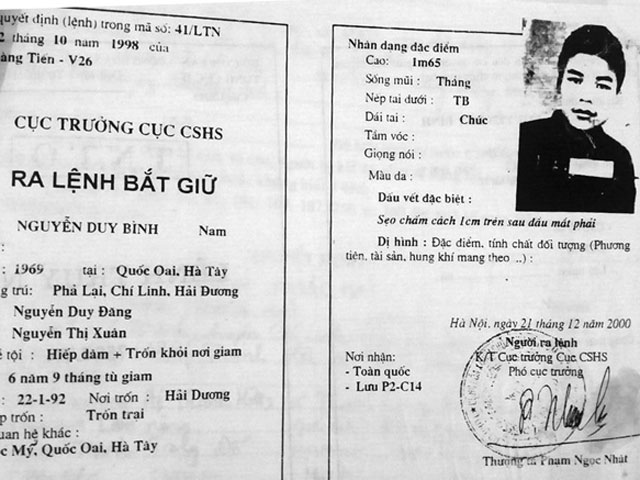 quyết định (lệnh) trong mã số: 41/LTN
2 tháng 10 năm 1998 của
àng Tiến - V26
CỤC TRƯỞNG CỤC CSHS
RA LỆNH BẮT GIỮ
NGUYỄN DUY BÌNH Nam
:
: 1969 tại : Quốc Oai, Hà Tây
ng trú: Phả Lại, Chí Linh, Hải Dương
Nguyễn Duy Đăng
Nguyễn Thị Xuân
ề tội : Hiếp dâm + Trốn khỏi nơi giam
6 năm 9 tháng tù giam
: 22-1-92 Nơi trốn : Hải Dương
p trốn : Trốn trại
uan hệ khác :
c Mỹ, Quốc Oai, Hà Tây
Nhân dạng đặc điểm
Cao: 1m65
Sống mũi : Thẳng
Nép tai dưới : TB
Dái tai : Chúc
Tầm vóc :
Giọng nói :
Màu da :
Dấu vết đặc biệt :
Sẹo chấm cách 1cm trên sau đầu mắt phải
Dị hình : Đặc điểm, tính chất đối tượng (Phương
tiện, tài sản, hung khí mang theo ..) :
Hà Nội, ngày 21 tháng 12 năm 2000
Người ra lệnh
K/T Cục trưởng Cục CSHS
Phó cục trưởng
Nơi nhận:
- Toàn quốc
- Lưu P2-C14
Thượng tá Phạm Ngọc Nhật